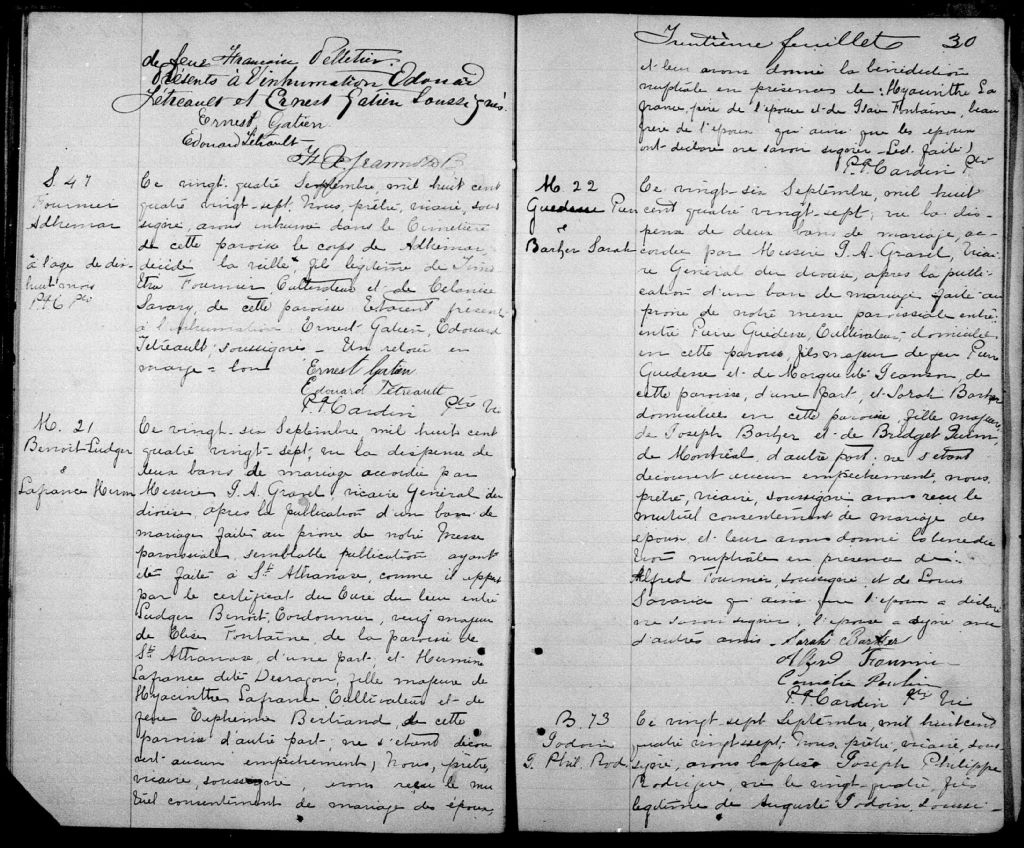 de feue Françoise Pelletier.
Présents à l'inhumation Edouard
Tétreault et Ernest Gatien Soussignés.
Ernest Gatien
Edouard Tétrault
S. 47
Fournier
Adhemar
à l'age de dix
huit mois
Ce vingt quatre Septembre, mil huit cent
quatre vingt-sept, Nous, prêtre, vicaire, sous
signé, avons inhumé dans le Cimetière
de cette paroisse le corps de Adhemar,
décédé la veille fils légitime de
Fournier Cultivateur et de Célanise
Savary, de cette paroisse. Etaient présent
à l'inhumation Ernest Gatien, Edouard
Tétreault soussignés - Un retour en
marge = bon
Ernest Gatien
Edouard Tétreault
P. A. Cardin Ptre Vic
M. 21
Benoit Ludger
&
Lafrance Herm
Ce vingt-six Septembre mil huit cent
quatre vingt-sept, vu la dispense de
deux bans de mariage accordée par
Messire J. A. Gravel, vicaire Général du
diocèse, après la publication d'un ban de
mariage faite au prone de notre Messe
paroissiale, semblable publication ayant
été faite à St. Athanase, comme il appert
par le certificat du Curé du lieu entre
Ludger Benoit, Cordonnier, veuf majeur
de Elise Fontaine, de la paroisse de
St. Athanase, d'une part, et Hermine
Lafrance dite Daragon, fille majeure de
Hyacinthe Lafrance Cultivateur et de
feue Euphemie Bertrand, de cette
paroisse d'autre part; ne s'étant décou
vert aucun empêchement, Nous, prêtre,
vicaire, soussigné, avons reçu le mu
tuel consentement de mariage des époux,
Trentième feuillet 30
et leur avons donné la bénédiction
nuptiale en présences de: Hyacinthe La
france, père de l'épouse et de Isaie Fontaine, beau
frère de l'époux qui ainsi que les époux
ont déclaré ne savoir signer - Lect. faite
P. A. Cardin Ptr
M. 22
Guedesse Pierre
&
Barker Sarah
Ce vingt-six Septembre, mil huit
cent quatre vingt-sept, vu la dis-
pense de deux bans de mariage, ac-
cordée par Messire J. A. Gravel, Vicai
re Général du diocese, après la publi-
cation d'un ban de mariage faite au
prone de notre messe paroissiale entre
entre Pierre Guedesse, Cultivateur domicilié
en cette paroisse, fils majeur de feu Pierre
Guedesse et de Marguerite Jeanson, de
cette paroisse, d'une part, et Sarah Barker
domiciliée en cette paroisse, fille majeure
de Joseph Barker et de Bridget Quinn,
de Montréal, d'autre part; ne s'étant
découvert aucun empêchement, nous,
prêtre, vicaire, soussigné avons reçu le
mutuel consentement de mariage des
époux et leur avons donné la bénédic
tion nuptiale en présence de:
Alfred Fournier, soussigné, et de Louis
Savaria qui ainsi que l'époux a déclaré
ne savoir signer, l'épouse a signé avec
d'autres amis
Sarah Barker
Alfred Fournier
Cornélie Poulin
P. A. Cardin Ptr Vic
B. 73
Godoin
J. Phil. Rod.
Ce vingt-sept Septembre, mil huit cent
quatre vingt sept, Nous, prêtre, vicaire, sous-
signé, avons baptisé Joseph Philippe
Rodrigue, né le vingt-quatre, fils
légitime de Auguste Godoin, soussi-